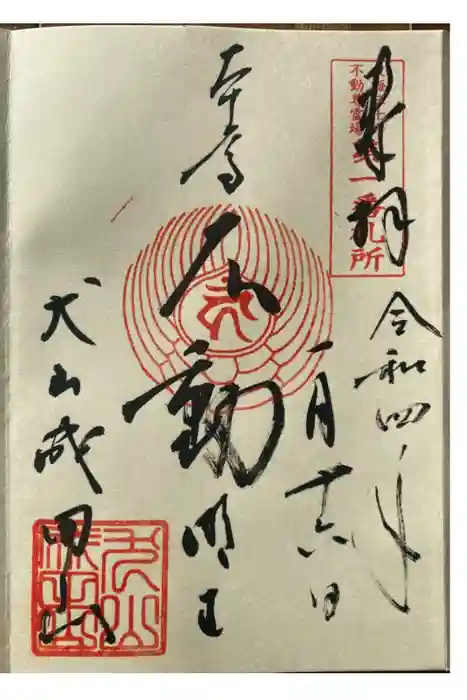 奉拝
不動尊霊場
第一番札所
令和四年
一月十六日
本尬
不動明王
犬山成田山